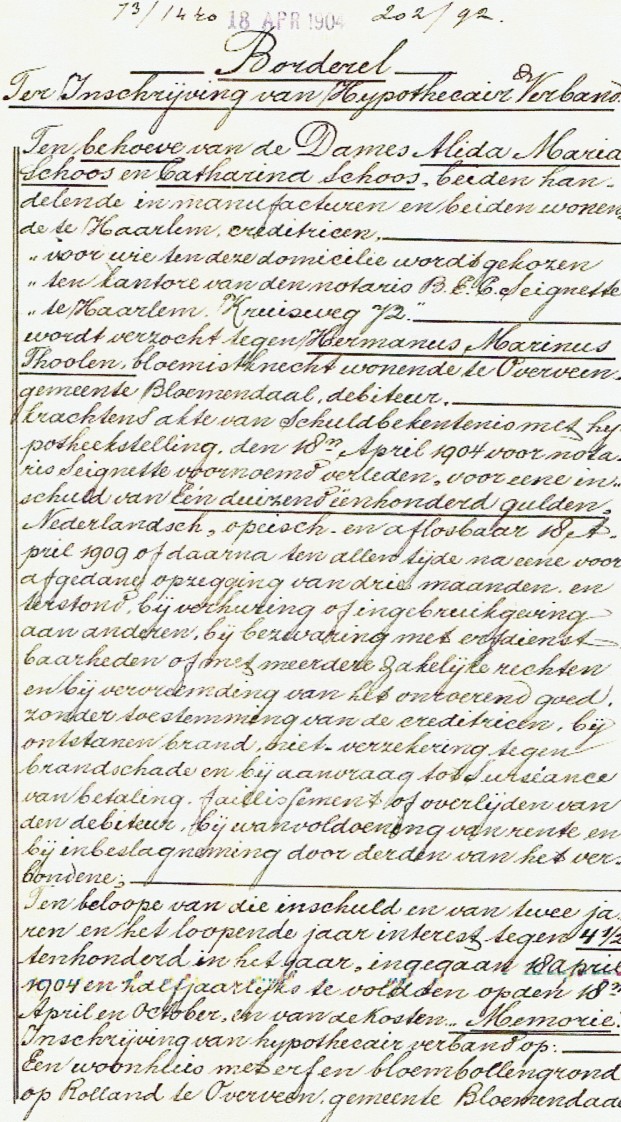 73/1440 18 APR 1904 202/92.
Borderel
Ter Inschrijving van Hypothecair Verband.
Ten behoeve van de Dames Alida Maria
Schoos en Catharina Schoos, beiden han-
delende in manufacturen en beiden wonen
de te Haarlem, creditricen,
„ voor wie ten deze domicilie wordt gekozen
„ ten kantore van den notaris B.E.C. Seignette
„ te Haarlem. Kruisweg 72."
wordt verzocht tegen Hermanus Marinus
Thoolen, bloemistknecht wonende te Overveen,
gemeente Bloemendaal, debiteur,
krachtens akte van Schuldbekentenis met hy-
potheekstelling, den 18en April 1904 voor nota-
ris Seignette voornoemd verleden, voor eene in-
schuld van Eén duizend éénhonderd gulden,
Nederlandsch, opeisch- en aflosbaar 18 A-
pril 1909 of daarna ten allen tijde na eene voor
afgedane opzegging van drie maanden, en
terstond, bij verhuring of ingebruikgeving
aan anderen, bij bezwaring met erfdienst-
baarheden of met meerdere zakelijke rechten
en bij vervreemding van het onroerend goed,
zonder toestemming van de creditricen, bij
ontstanen brand, niet-verzekering tegen
brandschade en bij aanvraag tot Surséance
van betaling, faillissement of overlijden van
den debiteur, bij wanvoldoening van rente en
bij inbeslagneming door derden van het ver-
bondene;
Ten beloope van die inschuld en van twee ja-
ren en het loopende jaar interest tegen 4 1/2
tenhonderd in het jaar, ingegaan 18 april
1904 en halfjaarlijks te voldoen op den 18en
April en October, en van de kosten „ Memorie.
Inschrijving van hypothecair verband op:
Een woonhuis met erf en bloembollengrond
op Rolland te Overveen, gemeente Bloemendaal